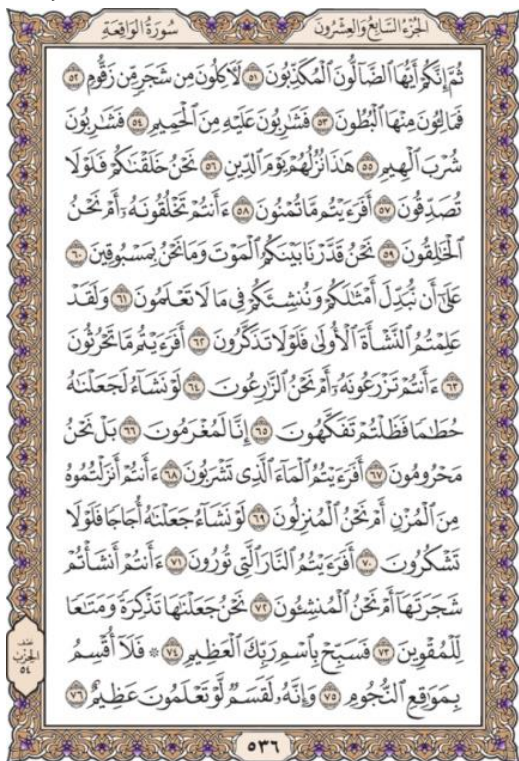 سُورَةُ الوَاقِعَةِ الجُزْءُ السَّابِعُ وَالعِشْرُونَ
ثُمَّ إِنَّكُمْ أَيُّهَا ٱلضَّآلُّونَ ٱلْمُكَذِّبُونَ ٥١ لَأٓكِلُونَ مِن شَجَرٍ مِّن زَقُّومٍ ٥٢
فَمَالِـُٔونَ مِنْهَا ٱلْبُطُونَ ٥٣ فَشَٰرِبُونَ عَلَيْهِ مِنَ ٱلْحَمِيمِ ٥٤ فَشَٰرِبُونَ
شُرْبَ ٱلْهِيمِ ٥٥ هَٰذَا نُزُلُهُمْ يَوْمَ ٱلدِّينِ ٥٦ نَحْنُ خَلَقْنَٰكُمْ فَلَوْلَا
تُصَدِّقُونَ ٥٧ أَفَرَءَيْتُم مَّا تُمْنُونَ ٥٨ ءَأَنتُمْ تَخْلُقُونَهُۥٓ أَمْ نَحْنُ
ٱلْخَٰلِقُونَ ٥٩ نَحْنُ قَدَّرْنَا بَيْنَكُمُ ٱلْمَوْتَ وَمَا نَحْنُ بِمَسْبُوقِينَ ٦٠
عَلَىٰٓ أَن نُّبَدِّلَ أَمْثَٰلَكُمْ وَنُنشِئَكُمْ فِى مَا لَا تَعْلَمُونَ ٦١ وَلَقَدْ
عَلِمْتُمُ ٱلنَّشْأَةَ ٱلْأُولَىٰ فَلَوْلَا تَذَكَّرُونَ ٦٢ أَفَرَءَيْتُم مَّا تَحْرُثُونَ
٦٣ ءَأَنتُمْ تَزْرَعُونَهُۥٓ أَمْ نَحْنُ ٱلزَّٰرِعُونَ ٦٤ لَوْ نَشَآءُ لَجَعَلْنَٰهُ
حُطَٰمًا فَظَلْتُمْ تَفَكَّهُونَ ٦٥ إِنَّا لَمُغْرَمُونَ ٦٦ بَلْ نَحْنُ
مَحْرُومُونَ ٦٧ أَفَرَءَيْتُمُ ٱلْمَآءَ ٱلَّذِى تَشْرَبُونَ ٦٨ ءَأَنتُمْ أَنزَلْتُمُوهُ
مِنَ ٱلْمُزْنِ أَمْ نَحْنُ ٱلْمُنزِلُونَ ٦٩ لَوْ نَشَآءُ جَعَلْنَٰهُ أُجَاجًا فَلَوْلَا
تَشْكُرُونَ ٧٠ أَفَرَءَيْتُمُ ٱلنَّارَ ٱلَّتِى تُورُونَ ٧١ ءَأَنتُمْ أَنشَأْتُمْ
شَجَرَتَهَآ أَمْ نَحْنُ ٱلْمُنشِـُٔونَ ٧٢ نَحْنُ جَعَلْنَٰهَا تَذْكِرَةً وَمَتَٰعًا
لِّلْمُقْوِينَ ٧٣ فَسَبِّحْ بِٱسْمِ رَبِّكَ ٱلْعَظِيمِ ٧٤ ۞ فَلَآ أُقْسِمُ
بِمَوَٰقِعِ ٱلنُّجُومِ ٧٥ وَإِنَّهُۥ لَقَسَمٌ لَّوْ تَعْلَمُونَ عَظِيمٌ ٧٦
نصف
الحزب
٥٤
٥٣٦